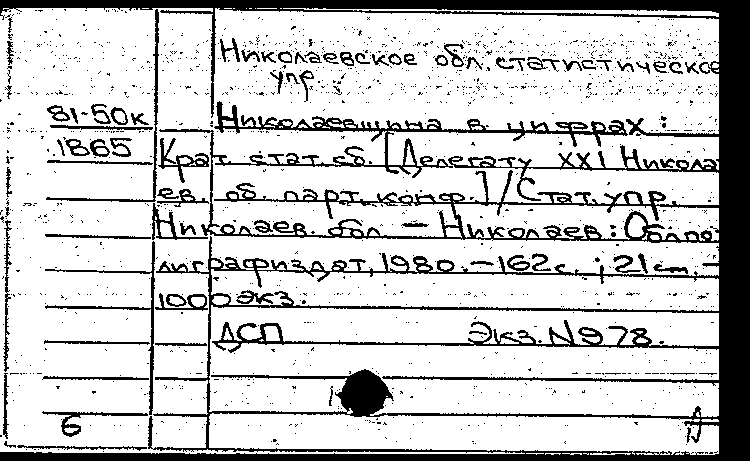 Николаевское обл. статистическое
упр.
81-50к
Николаевщина в цифрах:
1865
Крат. стат. сб. [Делегату XXI Никола
ев. об. парт. конф.] / Стат. упр.
Николаев. обл. — Николаев: Облпо
лиграфиздат, 1980. — 162 с.; 21 см. —
1000 экз.
ДСП Экз. N 978.
6